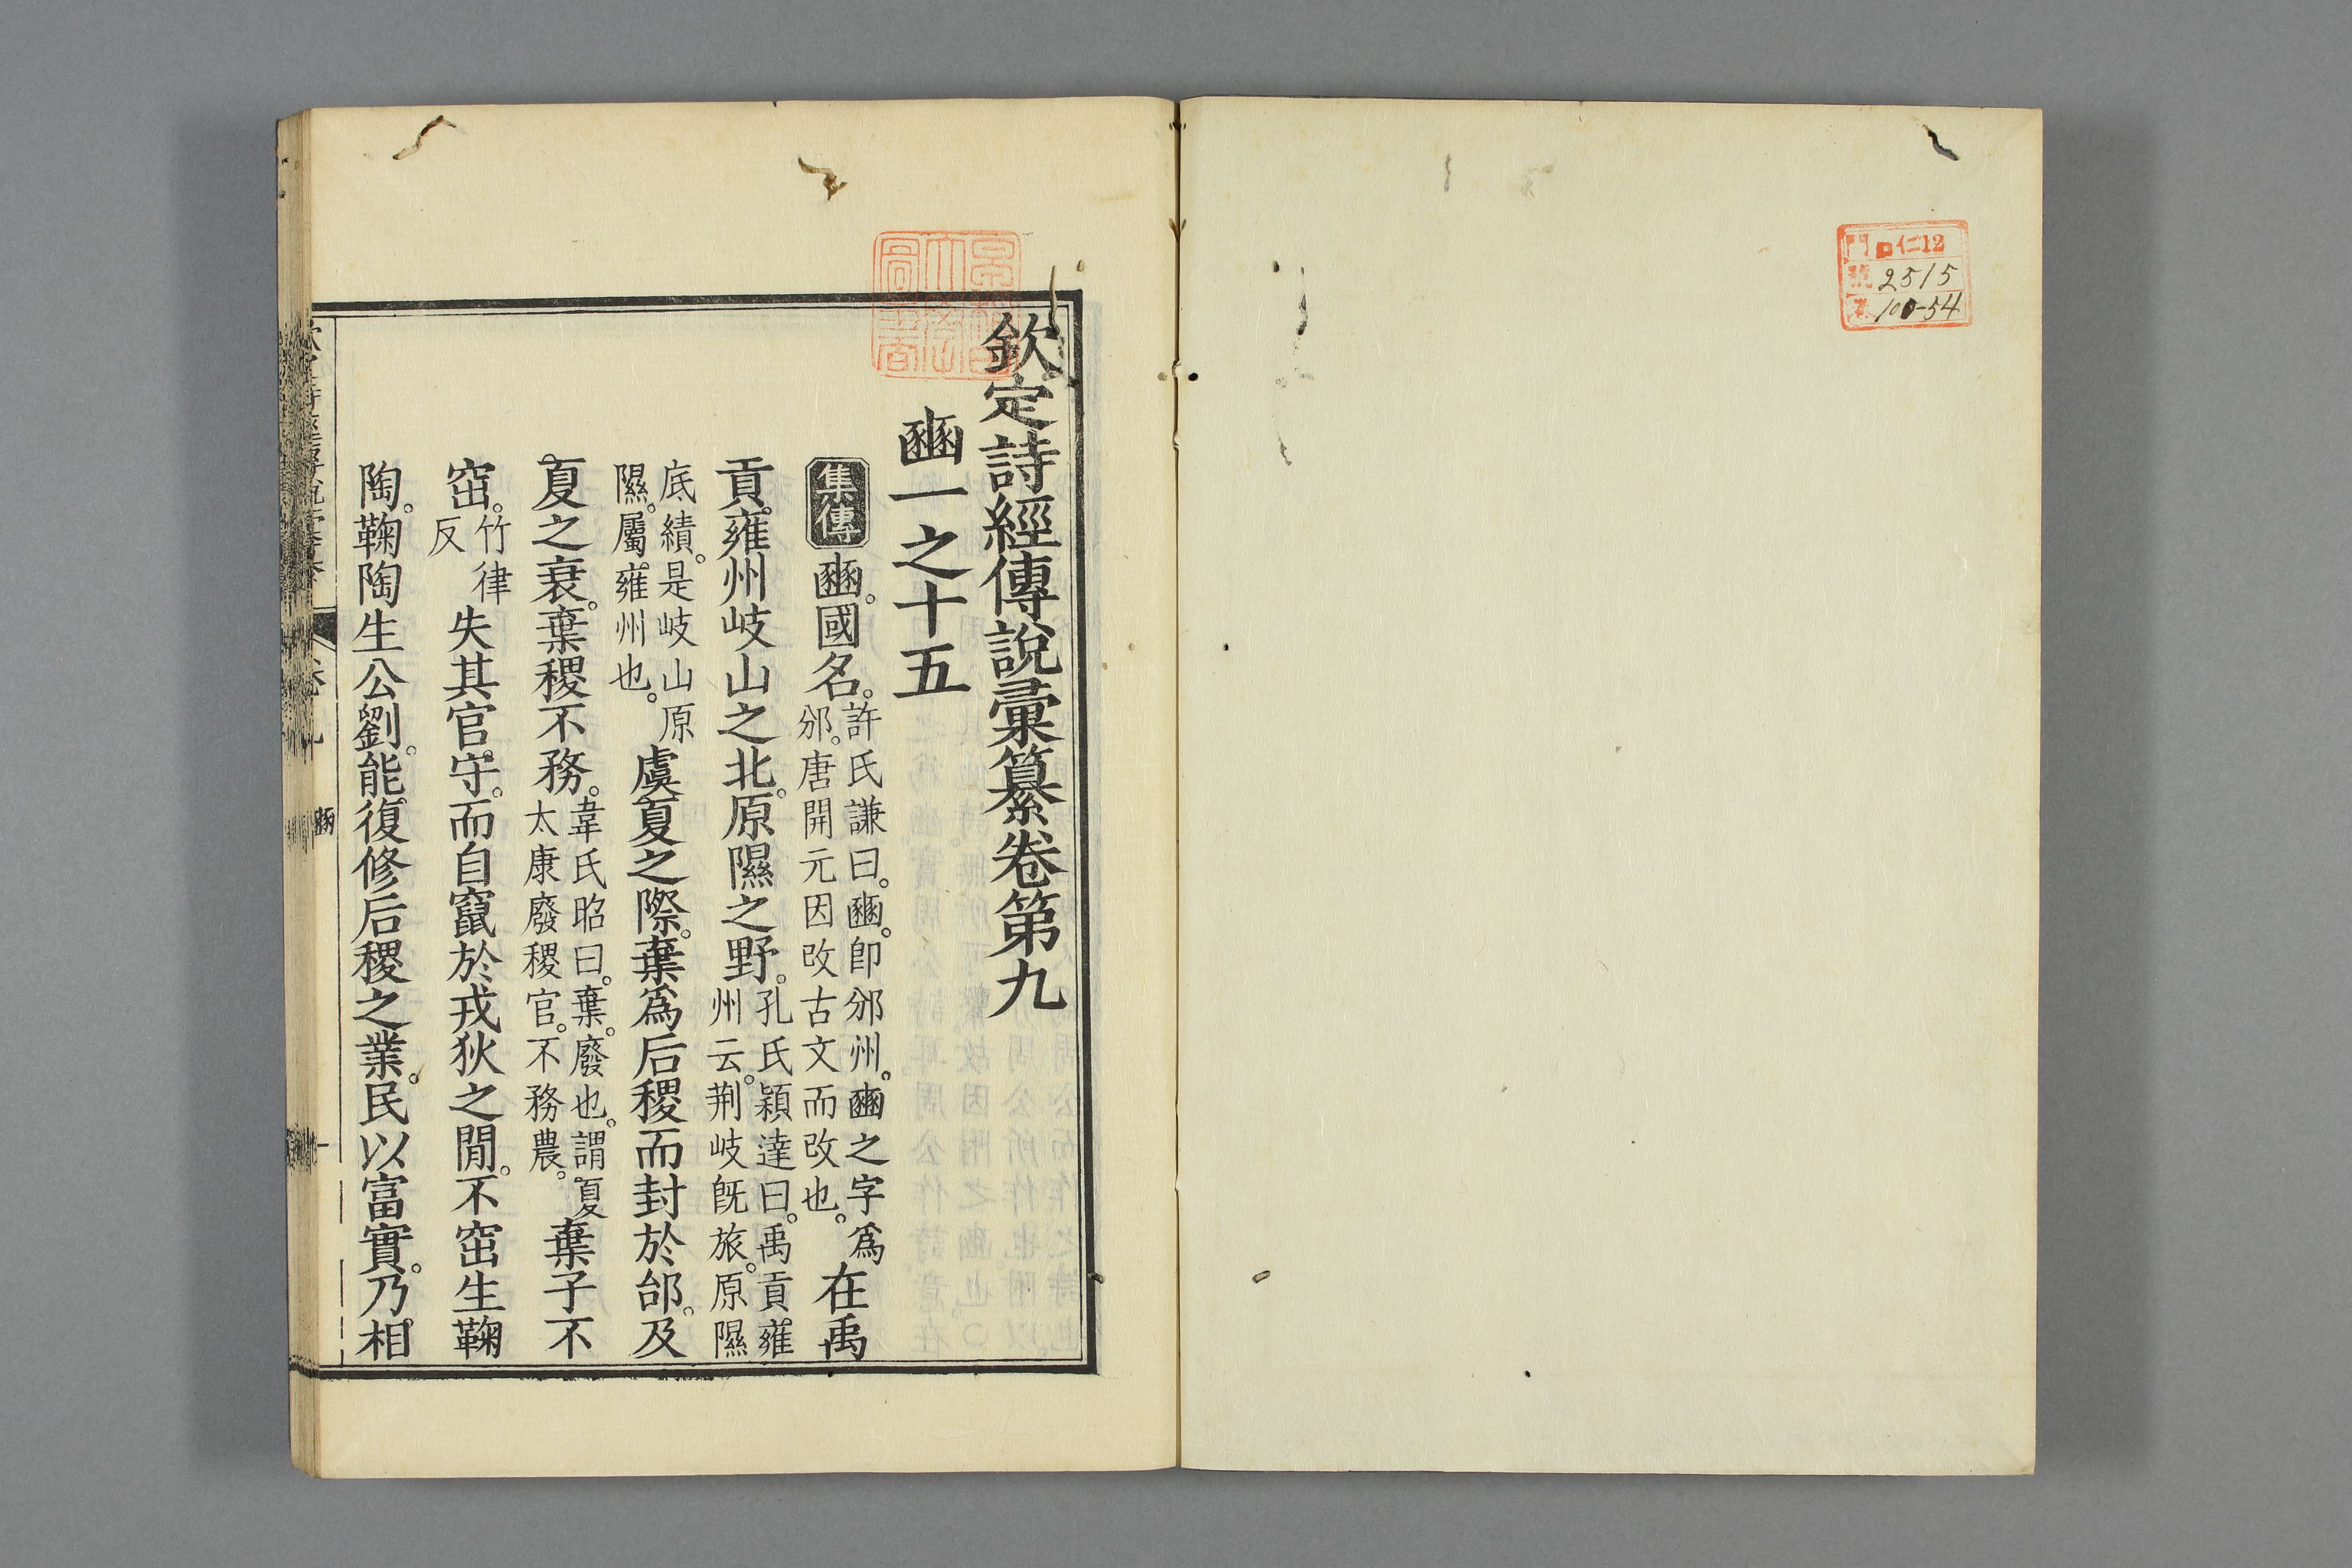 門 仁12
號 2515
100-54
欽定詩經傳說彙纂卷第九
豳一之十五
集傳 豳。國名。許氏謙曰。豳。卽邠州。豳之字爲邠。唐開元因改古文而改也。在禹
貢。雍州岐山之北。原隰之野。孔氏穎達曰。禹貢雍州云。荆岐旣旅。原隰
底績。是岐山原隰。屬雍州也。虞夏之際。棄爲后稷而封於邰。及
夏之衰。棄稷不務。韋氏昭曰。棄。廢也。謂夏太康廢稷官。不務農。棄子不
窋。竹律反 失其官守。而自竄於戎狄之閒。不窋生鞠
陶。鞠陶生公劉。能復修后稷之業。民以富實。乃相
豳